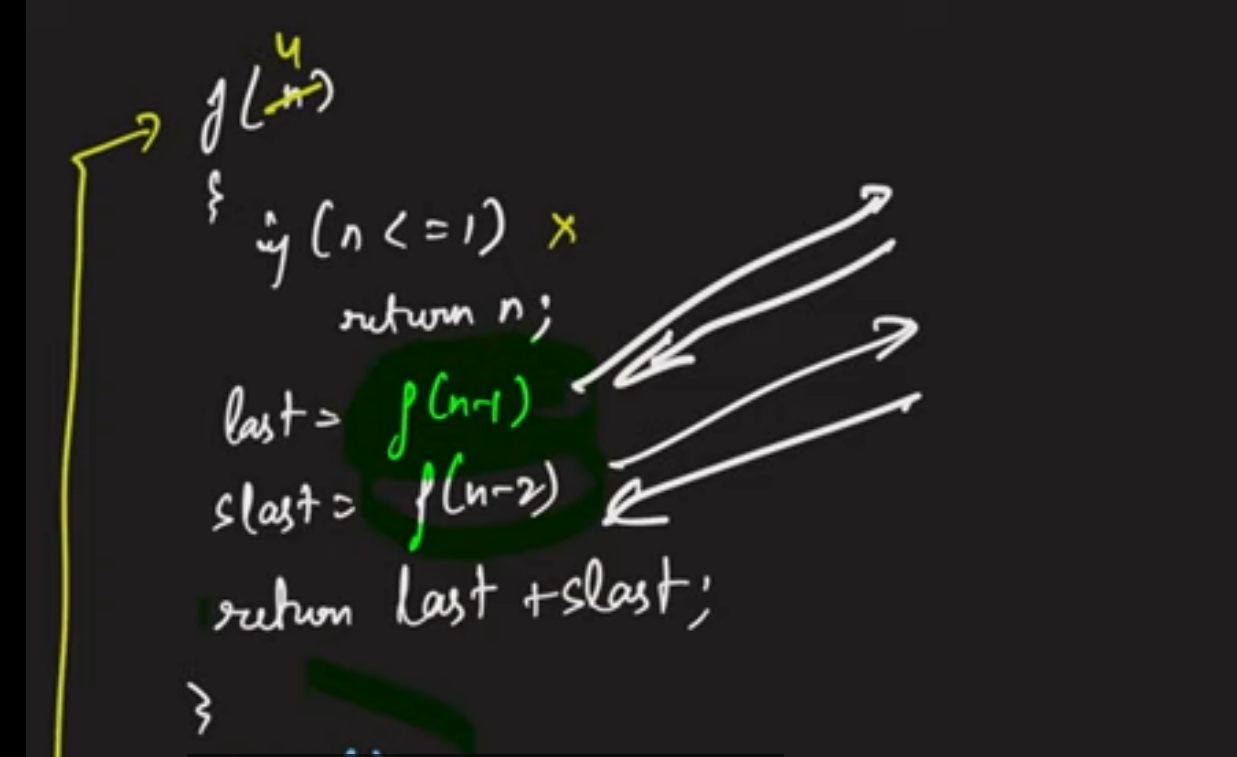 4
f(n)
{
if (n <= 1) x
return n;
last = f(n-1)
slast = f(n-2)
return last + slast;
}